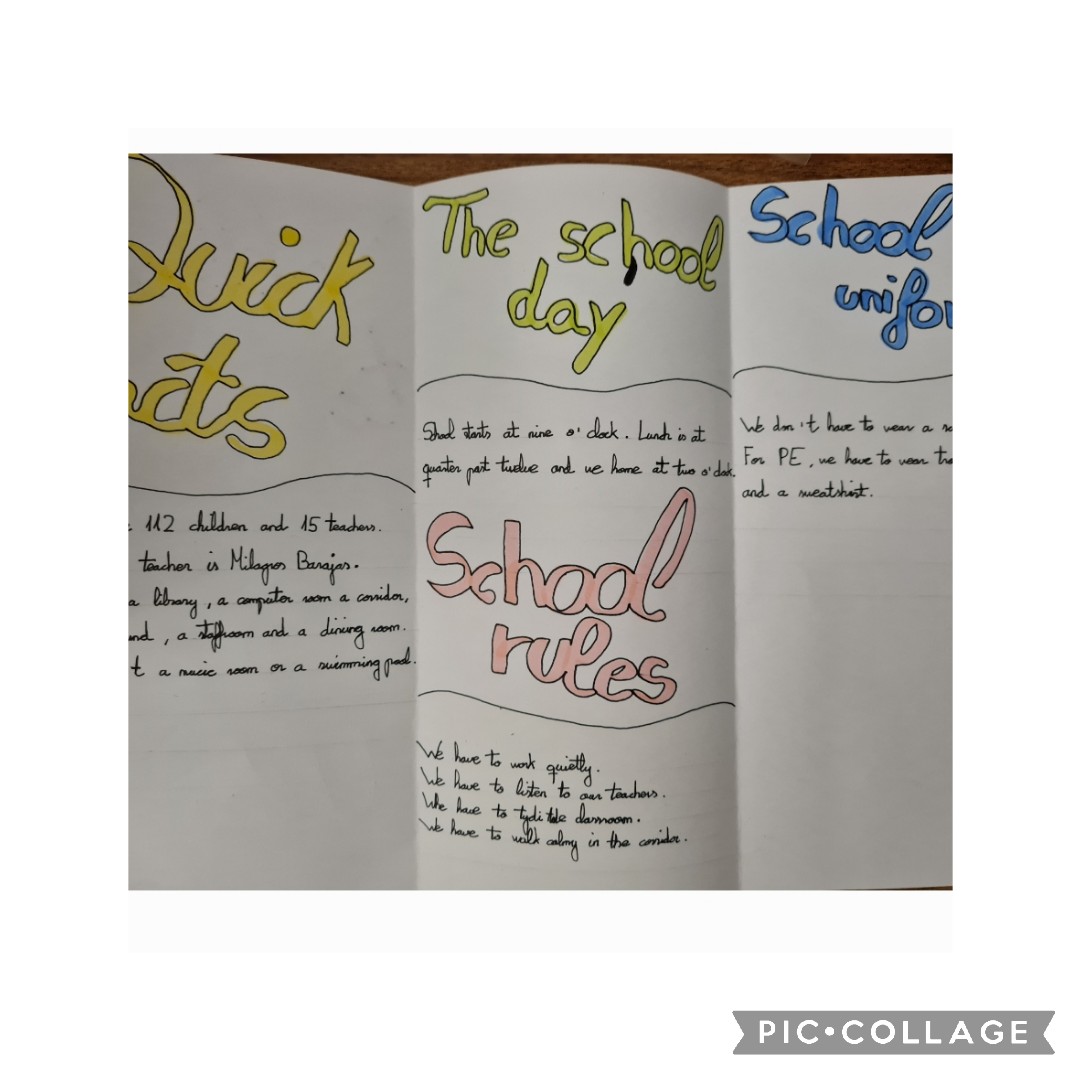 Quick
The school
day
School
112 children and 15 teachers.
teacher is Milagros Barajas.
a library, a computer room a corridor,
, a staffroom and a dining room.
a music room or a swimming pool.
School starts at nine o'clock. Lunch is at
quarter past twelve and we home at two o'clock.
School
rules
We have to work quietly.
We have to listen to our teachers.
We have to classroom.
We have to walk in the corridor.
We don't have to wear a
For PE, we have to wear
and a sweatshirt.
PIC•COLLAGE